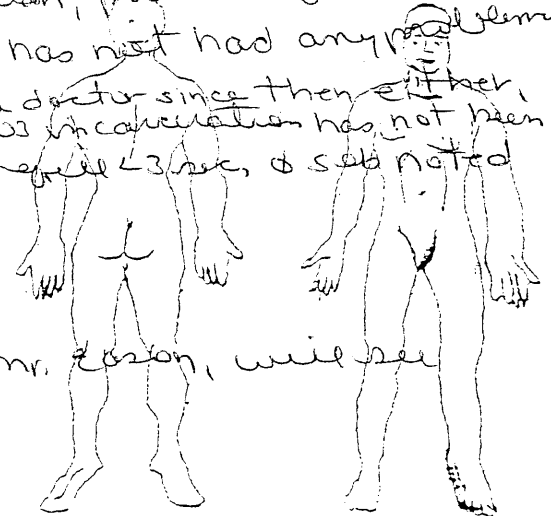 has not had any problems
doctor since then either,
03 incarceration has not been
refill <3 sec, ø sob noted
mr. Easton, will see